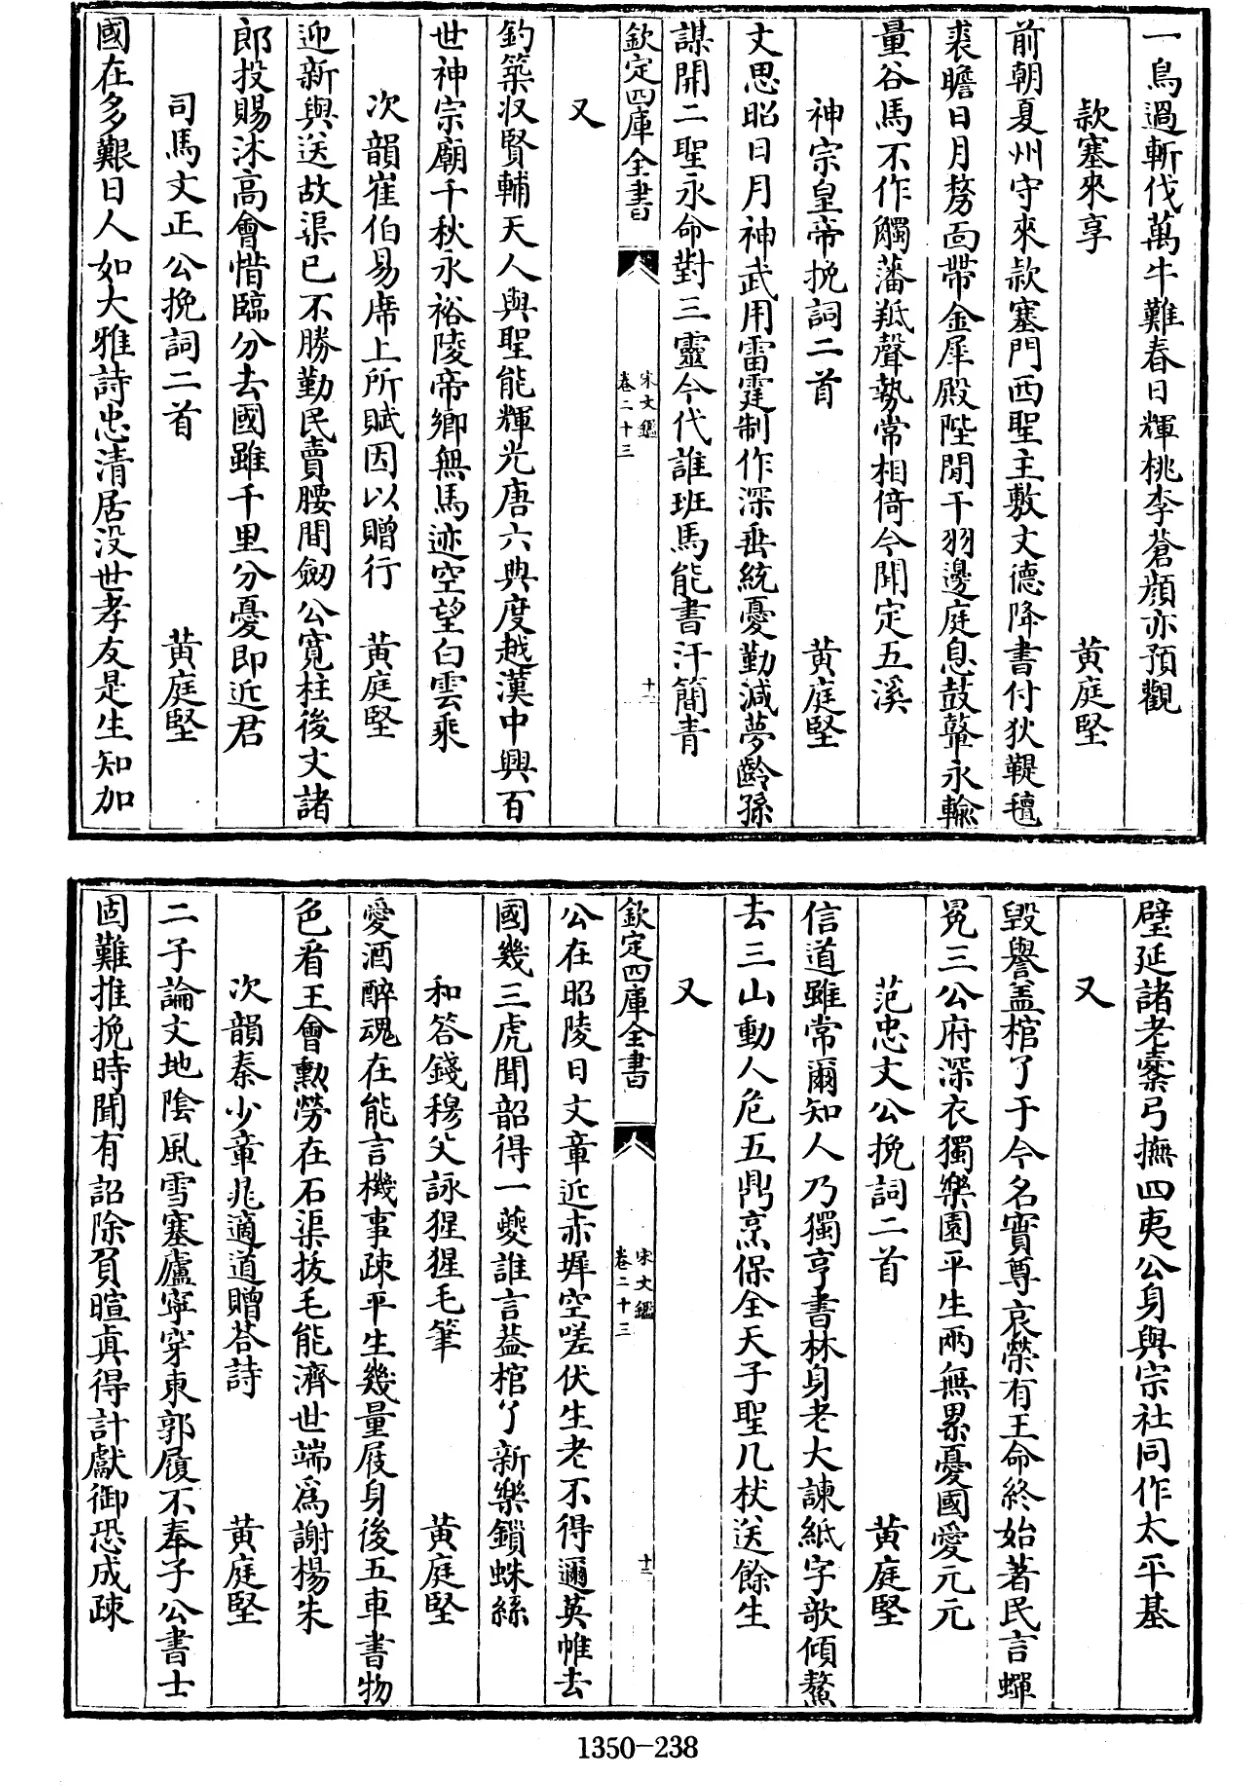 一鳥過斬伐萬牛難春日輝桃李蒼顏亦預觀
款塞來享　黃庭堅
前朝夏州守來款塞門西聖主敷文德降書付狄鞮氊
裘瞻日月剺面帶金犀殿陛閒干羽邊庭息鼓鼙永輸
量谷馬不作觸藩羝聲勢常相倚今聞定五溪
神宗皇帝挽詞二首　黃庭堅
文思昭日月神武用雷霆制作深垂統憂勤減夢齡孫
謀開二聖永命對三靈今代誰班馬能書汗簡青
欽定四庫全書　宋文鑑卷二十三　十一
又
釣築収賢輔天人與聖能輝光唐六典度越漢中興百
世神宗廟千秋永裕陵帝鄉無馬迹空望白雲乘
次韻崔伯易席上所賦因以贈行　黃庭堅
迎新與送故渠已不勝勤民賣腰間劒公寬柱後文諸
郎投賜沐高會惜臨分去國雖千里分憂即近君
司馬文正公挽詞二首　黃庭堅
國在多艱日人如大雅詩忠清居没世孝友是生知加
璧延諸老櫜弓撫四夷公身與宗社同作太平基
又
毀譽盖棺了于今名實尊哀榮有王命終始著民言蟬
冕三公府深衣獨樂園平生兩無累憂國愛元元
范忠文公挽詞二首　黃庭堅
信道雖常爾知人乃獨亨書林身老大諫紙字歌傾鰲
去三山動人危五鼎烹保全天子聖几杖送餘生
又
欽定四庫全書　宋文鑑卷二十三　十二
公在昭陵日文章近赤墀空嗟伏生老不得邇英帷去
國幾三虎聞韶得一夔誰言葢棺了新樂鎖蛛絲
和答錢穆父詠猩猩毛筆　黃庭堅
愛酒醉魂在能言機事疎平生幾量屐身後五車書物
色看王會勲勞在石渠拔毛能濟世端為謝楊朱
次韻秦少章晁適道贈荅詩　黃庭堅
二子論文地隂風雪塞廬寧穿東郭履不奉子公書士
固難推挽時聞有詔除負暄真得計獻御恐成疎
1350-238